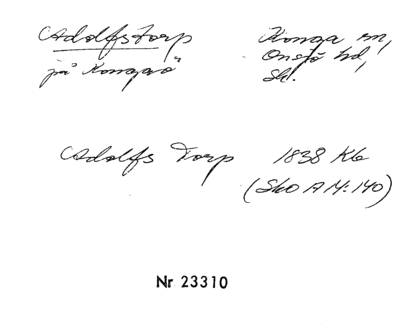 Adolfstorp Konga sn,
på Kongaö Onsjö hd,
Sk.
Adolfs Torp 1838 Kb
(Sko A II:140)
Nr 23310